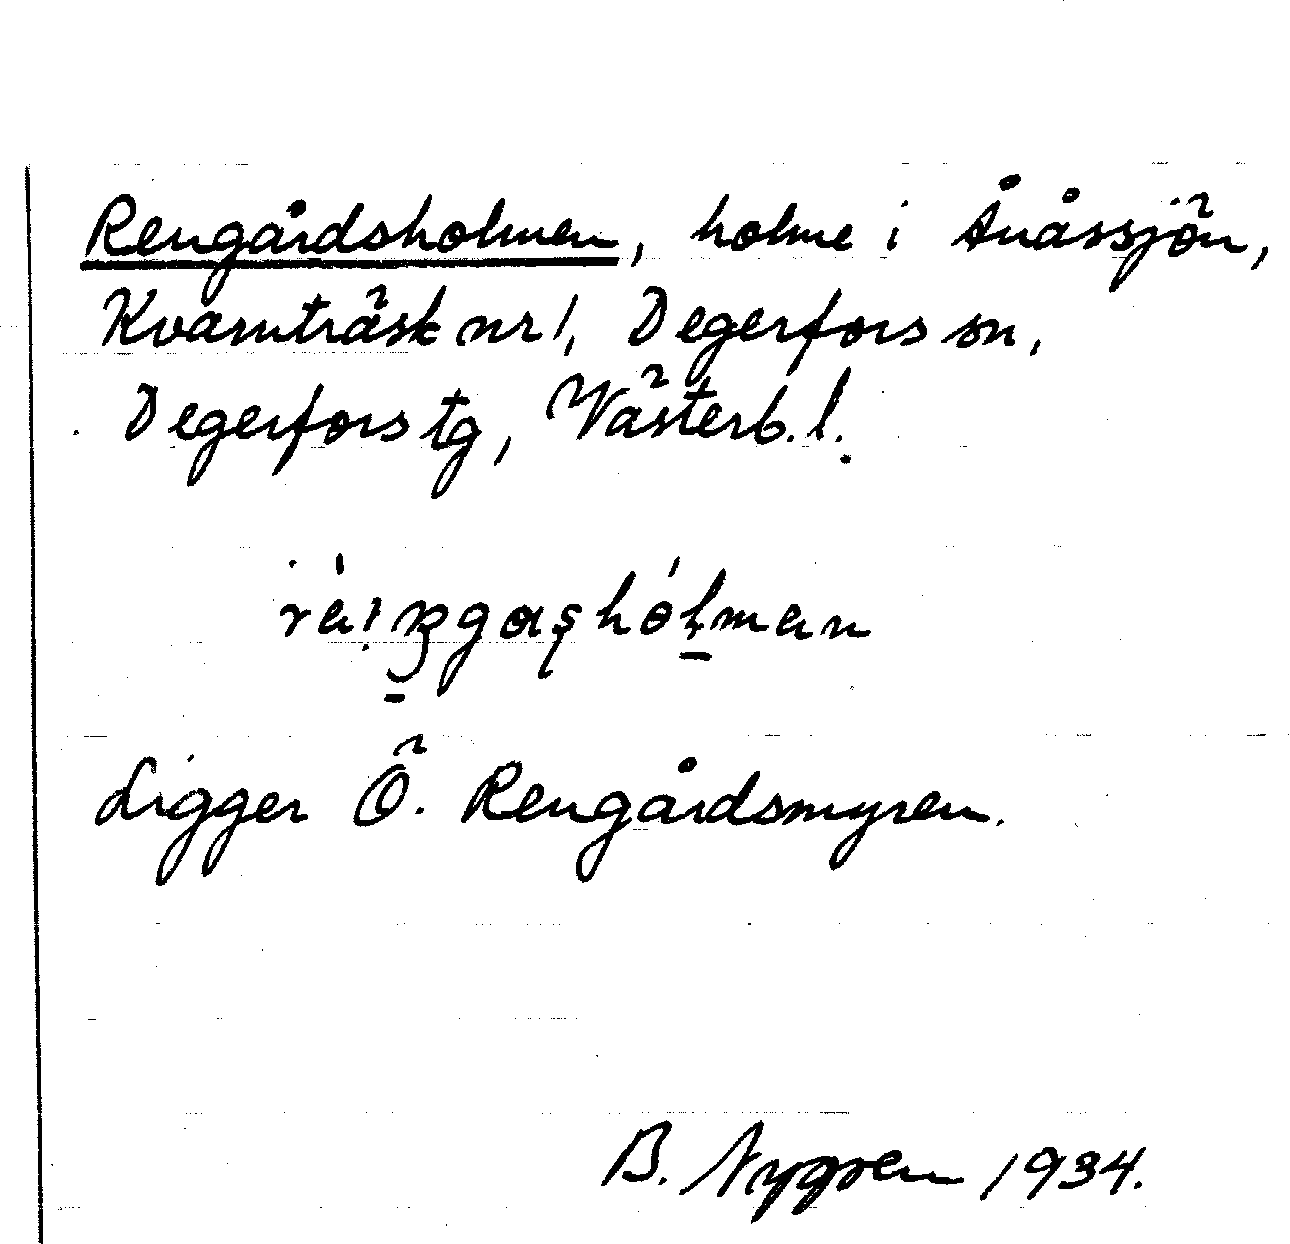 Rengårdsholmen, holme i Ånässjön,
Kvarnträsk nr 1, Degerfors sn,
Degerfors tg, Västerb. l.
Ligger Ö. Rengårdsmyren.
B. Nygren 1934.